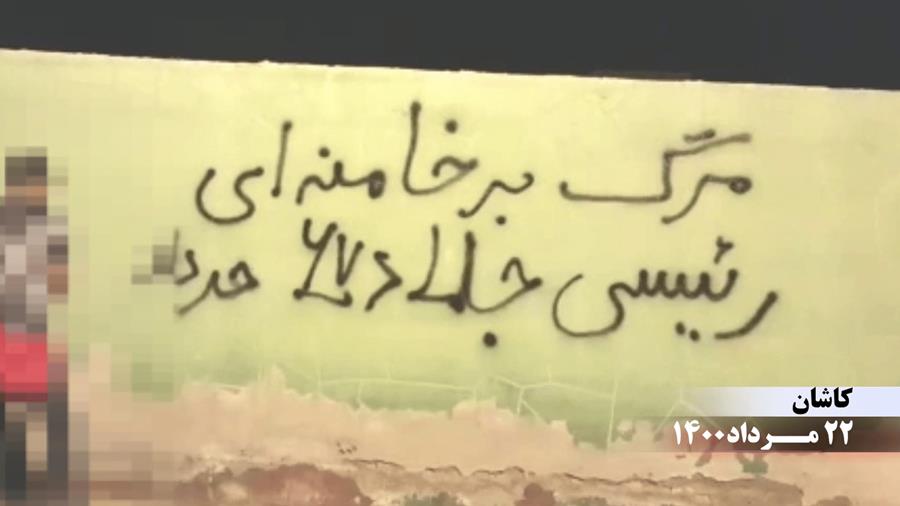 مرگ بر خامنه ای
رئیسی جلاد ۶۷
کاشان
۲۲ مرداد ۱۴۰۰